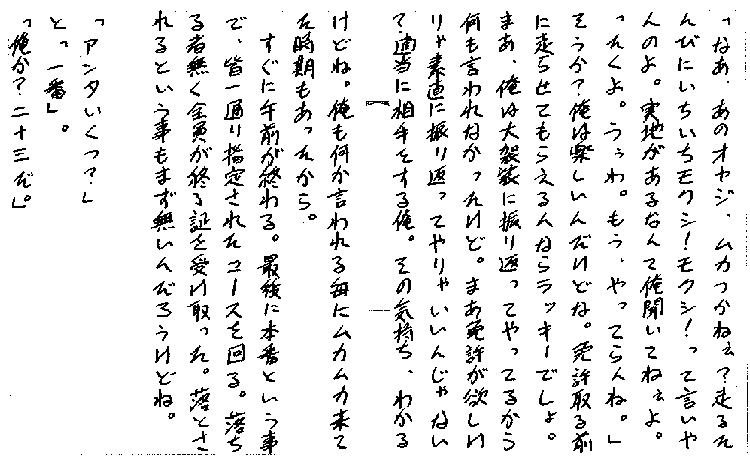 「なあ、あのオヤジ、ムカつかねぇ？走るた
んびにいちいちモクシ！モクシ！って言いや
んのよ。実地があるなんて俺聞いてねぇよ。
ったくよ。うぅわ。もう、やってらんね。」
そうか？俺は楽しいんだけどな。免許取る前
に走らせてもらえるんならラッキーでしょ。
まあ、俺は大袈裟に振り返ってやってるから
何も言われなかったけど。まあ免許が欲しけ
りゃ素直に振り返ってやりゃいいんじゃない
？適当に相手をする俺。その気持ち、わかる
けどね。俺も何か言われる毎にムカムカ来て
た時期もあったから。
すぐに午前が終わる。最後に本番という事
で、皆一通り指定されたコースを回る。落ち
る者無く全員が終る証を受け取った。落とさ
れるという事もまず無いんだろうけどね。
「アンタいくつ？」
と、一番」。
「俺か？二十三だ」。